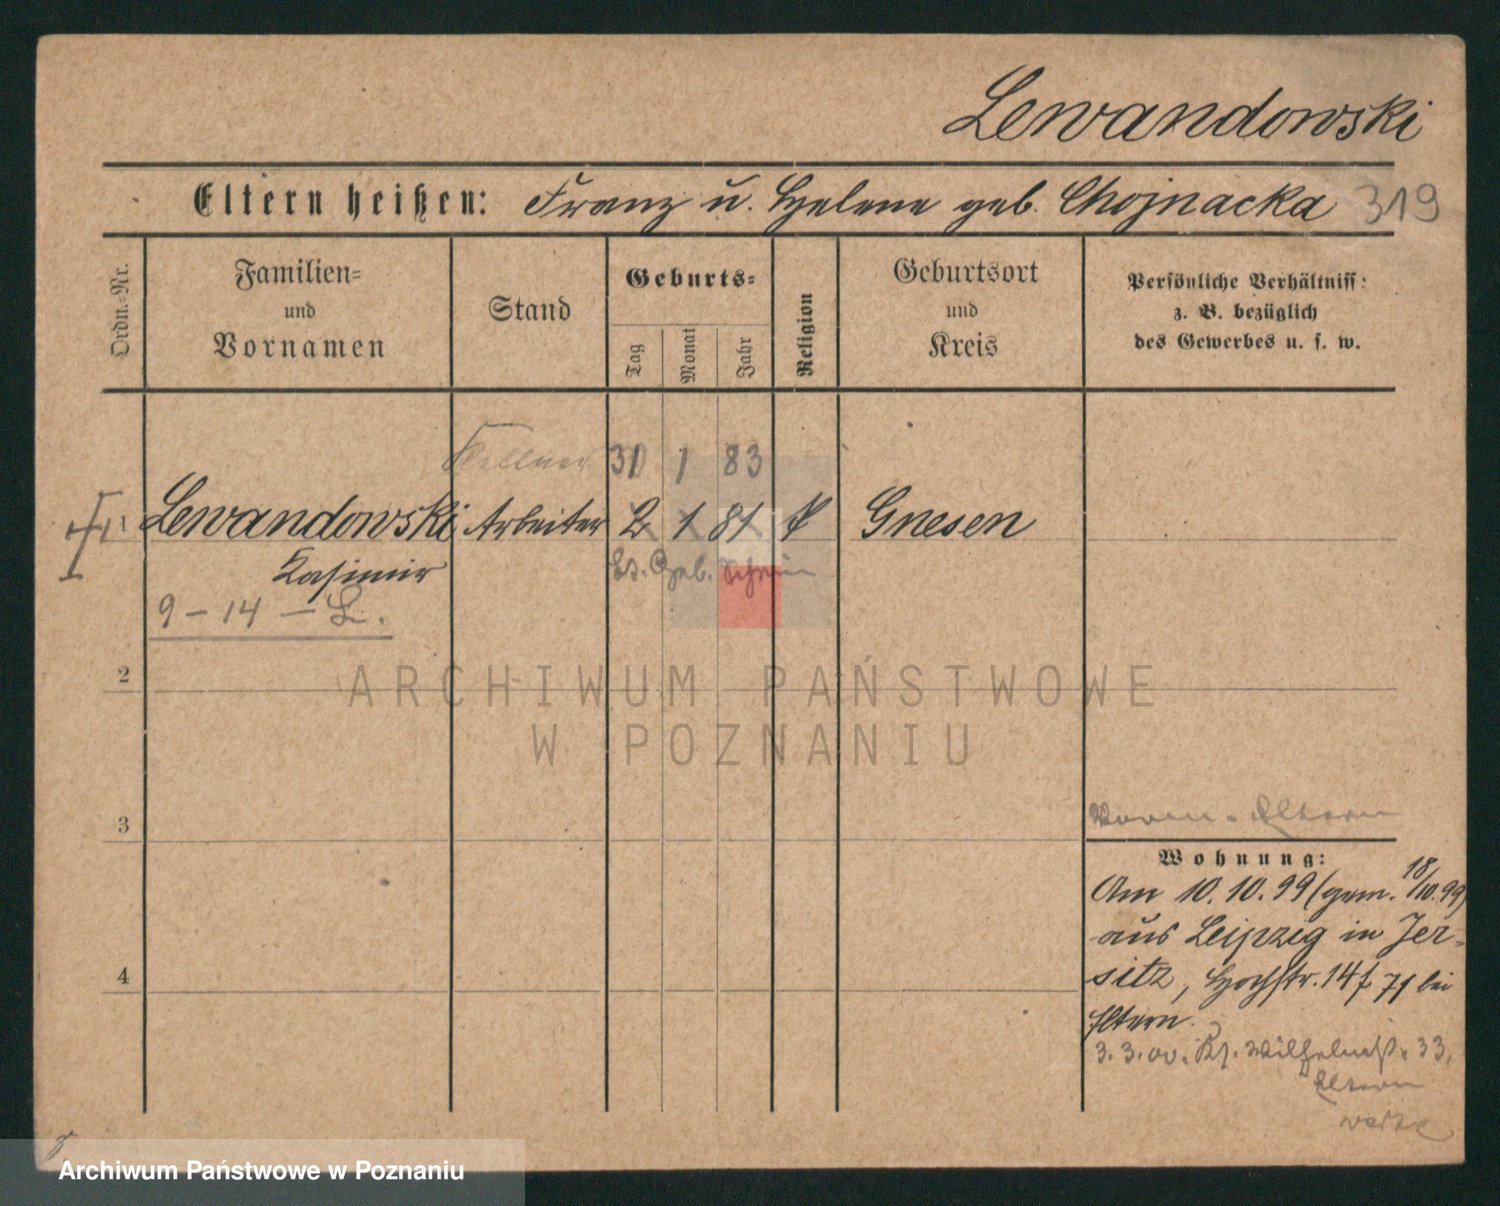 Lewandowski
Eltern heißen: Franz u. Helene geb. Chojnacka 319
Ordn.=Nr.
Familien=
und
Vornamen
Stand
Geburts=
Tag
Monat
Jahr
Religion
Geburtsort
und
Kreis
Persönliche Verhältniss:
z. B. bezüglich
des Gewerbes u. s. w.
Kellner 31 1 83
1 Lewandowski Arbeiter 2 1 81 k Gnesen
Kasimir
Ls. Geb. Schein
9 - 14 - L.
2
ARCHIWUM PAŃSTWOWE
W POZNANIU
3
Eltern
Wohnung:
Am 10. 10. 99 (gem. 18/10. 99)
aus Leipzig in Jer-
sitz, Hochstr. 14 71 bei
Eltern.
3. 3. 00. Wilhelmstr. 33,
Eltern
4
Archiwum Państwowe w Poznaniu